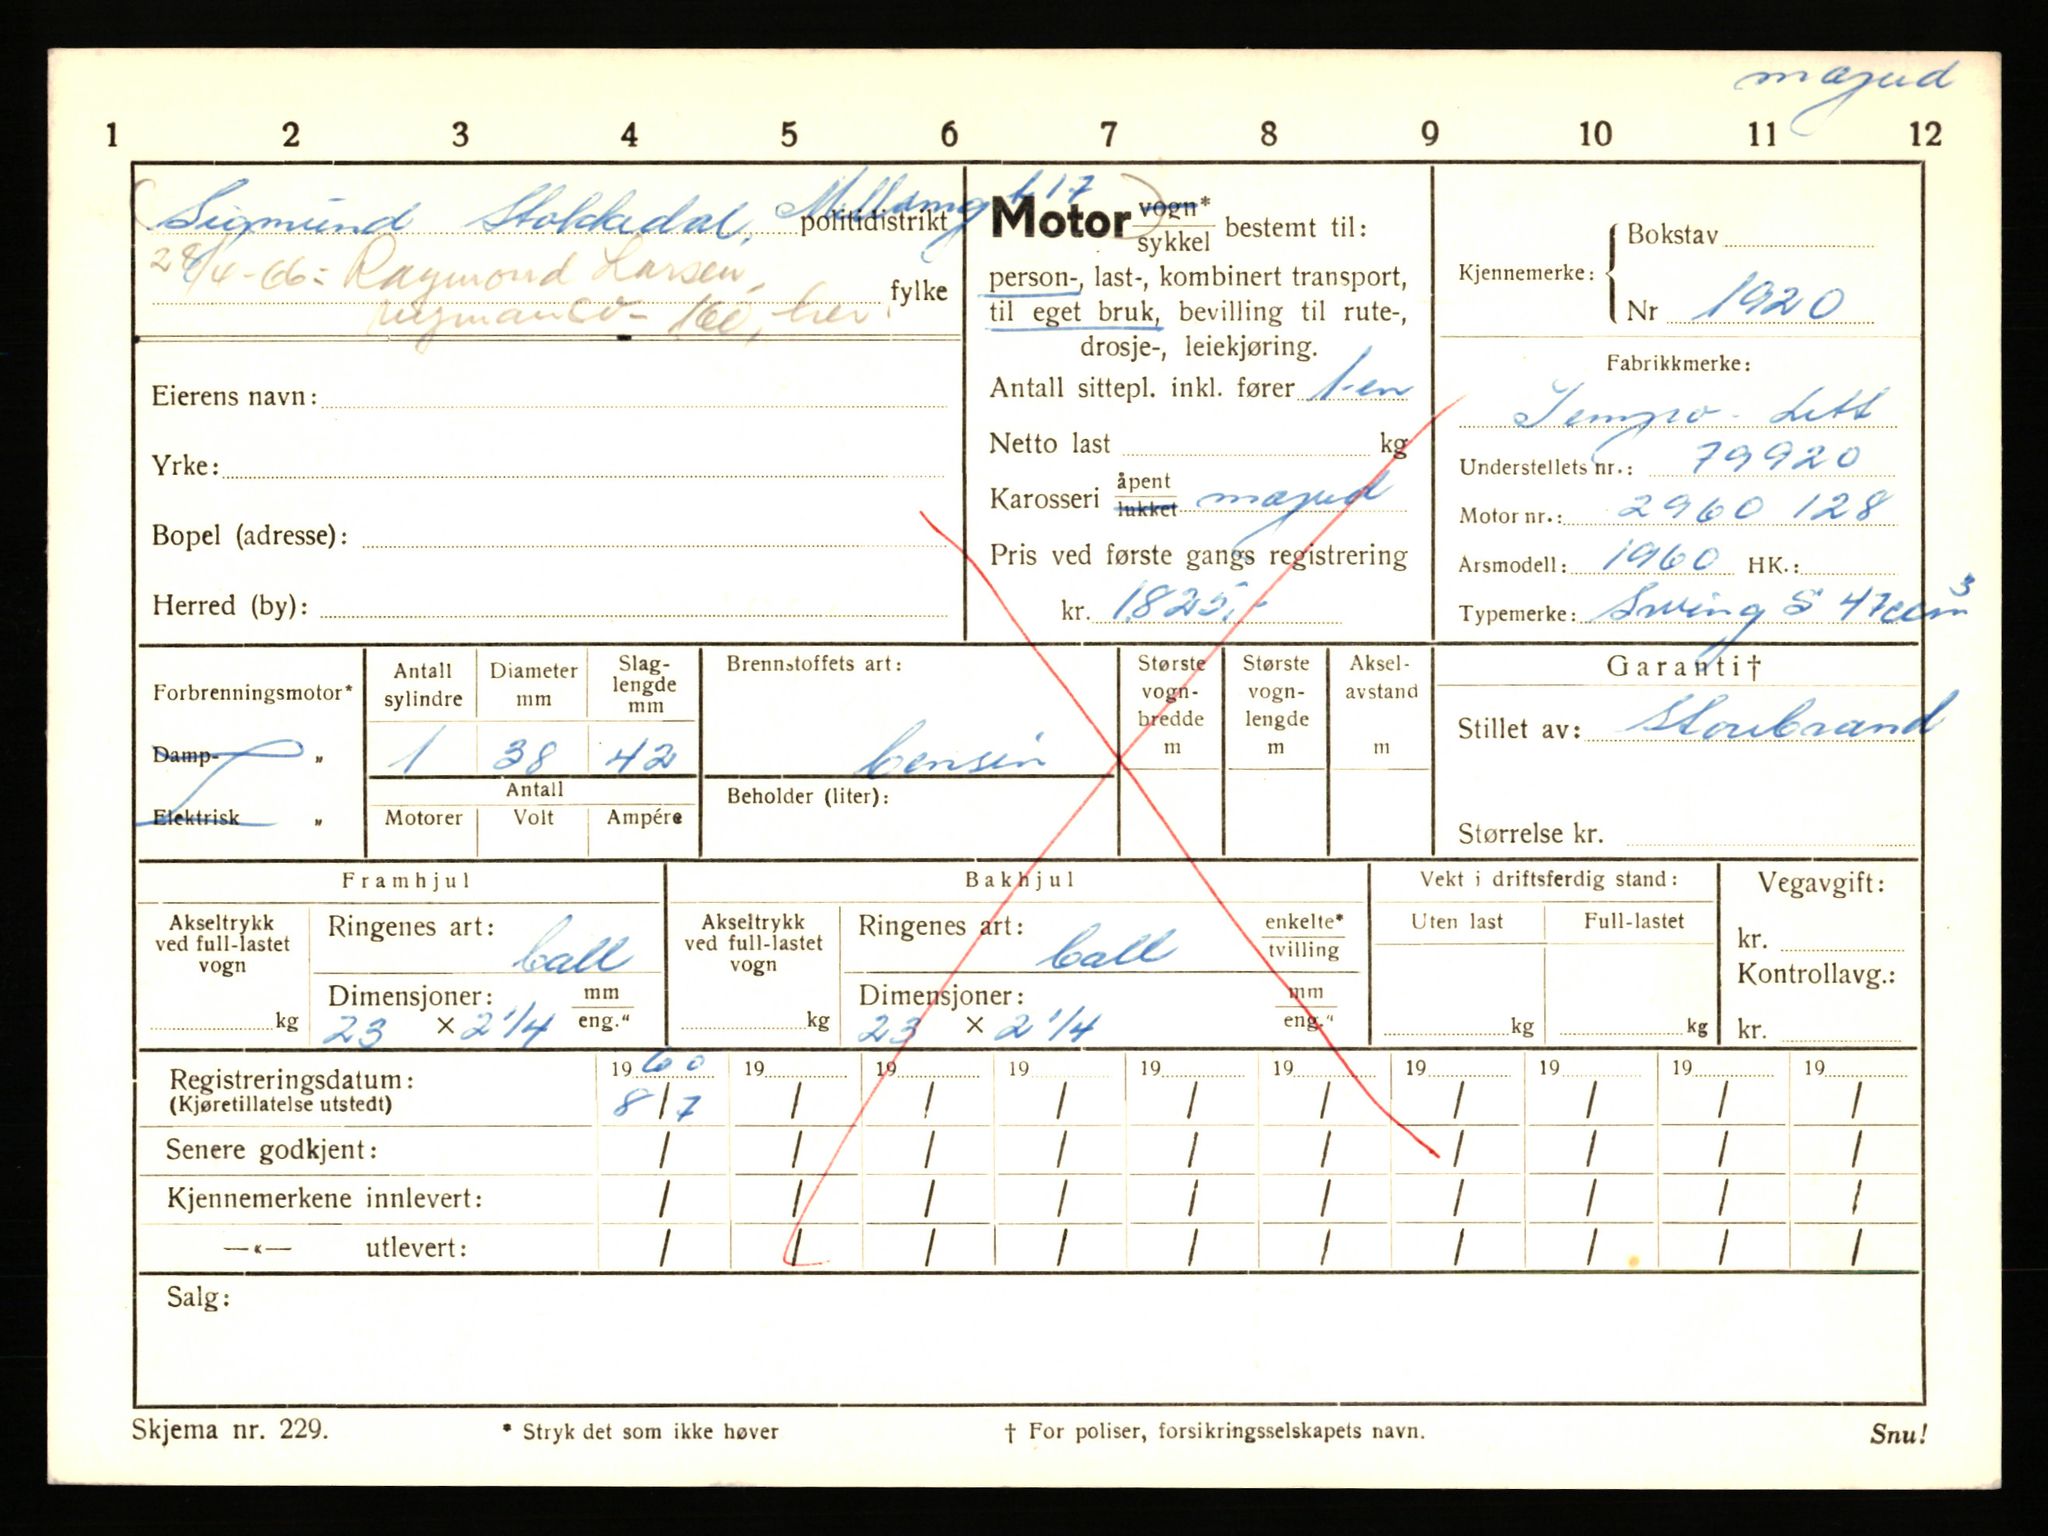 mopud
1 2 3 4 5 6 7 8 9 10 11 12
Sigmund Stokkedal, politidistrikt
28/4-66: Raymond Larsen,
fylke
160, her.
Eierens navn:
Yrke:
Bopel (adresse):
Herred (by):
Motor vogn* / sykkel bestemt til:
person-, last-, kombinert transport,
til eget bruk, bevilling til rute-,
drosje-, leiekjøring.
Antall sittepl. inkl. fører 1-en
Netto last kg
Karosseri åpent / lukket moped
Pris ved første gangs registrering
kr. 1825,-
Kjennemerke: Bokstav
Nr 1920
Fabrikkmerke:
Tempo - Lett
Understellets nr.: 79920
Motor nr.: 2960 128
Arsmodell: 1960 HK.:
Typemerke: Swing S 47ccm3
Forbrenningsmotor*
Damp- "
Elektrisk "
Antall sylindre
Diameter mm
Slaglengde mm
1 38 42
Antall
Motorer Volt Ampére
Brennstoffets art:
bensin
Beholder (liter):
Største vogn-bredde m
Største vogn-lengde m
Aksel-avstand m
Garanti†
Stillet av: Storebrand
Størrelse kr.
Framhjul
Akseltrykk ved full-lastet vogn
kg
Ringenes art: ball
Dimensjoner: mm / eng."
23 × 2 1/4
Bakhjul
Akseltrykk ved full-lastet vogn
kg
Ringenes art: ball enkelte* / tvilling
Dimensjoner: mm / eng."
23 × 2 1/4
Vekt i driftsferdig stand:
Uten last Full-lastet
kg kg
Vegavgift:
kr.
Kontrollavg.:
kr.
Registreringsdatum: 1960 19 19 19 19 19 19 19 19 19
(Kjøretillatelse utstedt) 8/7 / / / / / / / / /
Senere godkjent: / / / / / / / / / /
Kjennemerkene innlevert: / / / / / / / / / /
—«— utlevert: / / / / / / / / / /
Salg:
Skjema nr. 229. * Stryk det som ikke høver † For poliser, forsikringsselskapets navn. Snu!